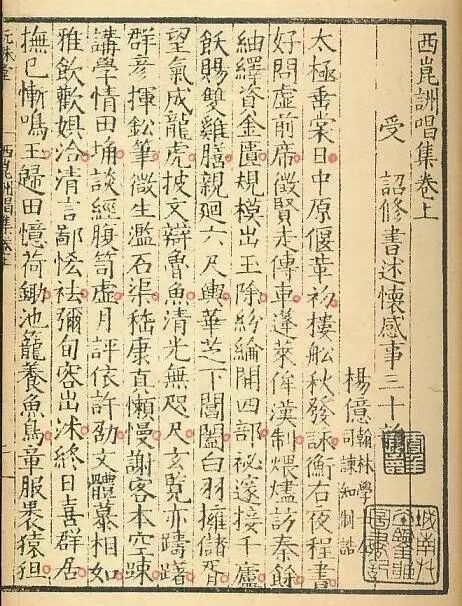 西崑詶唱集卷上
受 詔修書述懷感事三十
楊億 翰林學士
司諫知制誥
太極垂裳日中原偃革初樓舩秋發詠衡右夜程書
好問虛前席徵賢走傳車蓬萊侔漢制煨燼訪秦餘
紬繹資金匱規模出玉除紛綸開四部祕邃接千廬
飫賜雙雞膳親廻六尺輿華芝下閶闔白羽擁儲胥
望氣成龍虎披文辯魯魚清光無咫尺玄覽亦躊躇
群彥揮鈆筆微生濫石渠嵇康直懶慢謝客本空疎
講學情田埆談經腹笥虛月評依許劭文體慕相如
雅飲歡娛洽清言鄙恡袪彌旬容出沐終日喜群居
撫已慚鳴玉歸田憶荷鋤池籠養魚鳥章服裹猿狙
西崑詶唱集卷上